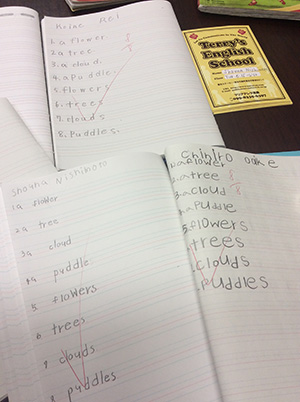 1. a flower
2. a tree
3. a cloud
4. a puddle
5. flowers
6. trees
7. clouds
8. puddles.
8
8
Terry's
English
School
Shouna Nishimoto
1 a
2 a tree
3 a cloud
4 a puddle
5. flowers
6 trees
7 clouds
8 puddles
Chihiro
1. a flower
2. a tree
8
3. a cloud
8
a puddle
5. flowers
trees
clouds
puddles